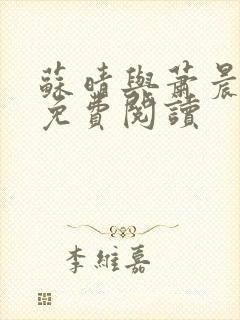 蘇晴與蕭晨
免費閱讀
李維嘉